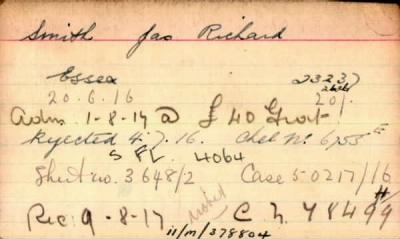 Smith Jas Richard
Essex 23237
20.6.16 20/-
Adm. 1-8-17 @ £40 Grat
Rejected 4.7.16. Chel No 6755 E
S FL. 4064
Sheet no. 3648/2 Case 50217/16
Rec: 9-8-17 noted C H 78499
11/M/378804